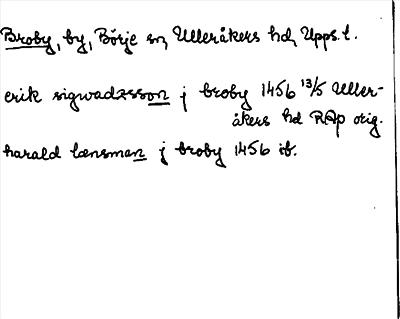 Broby, by, Börje sn, Ulleråkers hd, Upps. l.
erik sigwadzsson j broby 1456 13/5 Uller-
åkers hd RAp orig.
harald lænsman j broby 1456 ib.